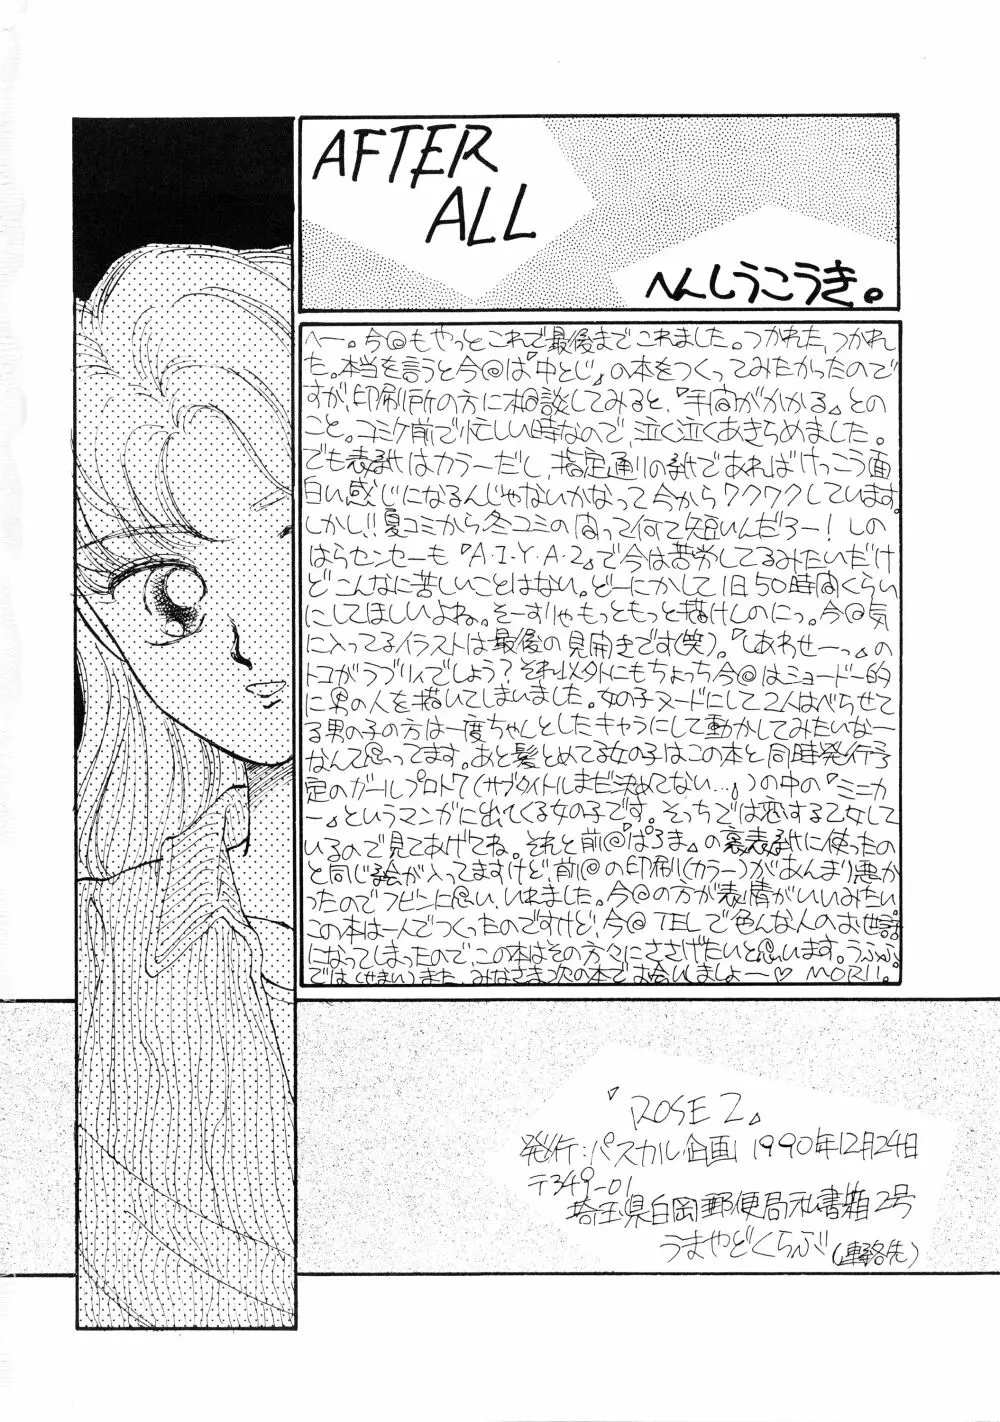 AFTER
ALL
へんしうこうき。
へー。今@もやっとこれで最後までこれました。つかれた、つかれ
た。本当を言うと今@は『中とじ』の本をつくってみたかったので
すが、印刷所の方に相談してみると、『手間がかかる』との
こと。コミケ前で忙しい時なので、泣く泣くあきらめました。
でも表紙はカラーだし、指定通りの紙であればけっこう面
白い感じになるんじゃないかなって今からワクワクしています。
しかし!!夏コミから冬コミのはって何て短いんだろー!しの
はらセンセーも『A・I・Y・A・2』で今は苦労してるみたいだけ
どこんなに苦しいことはない。どーにかして1日50時間くらい
にしてほしいよね。そーすりゃもっともっと描けしのにっ。今@気
に入ってるイラストは最後の見開きです(笑)。『しあわせーっ』の
トコがラブリィでしょう?それ以外にもちょっち今@はショードー的
に男の人を描いてしまいました。女の子ヌードにして2人はべらせて
る男の子の方は一度ちゃんとしたキャラにして動かしてみたいなー
なんて思ってます。あと髪とめてる女の子はこの本と同時発行予
定のガールプロト7(サブタイトルまだ決めてない…。)の中の『ミニカ
ー』というマンガに出てくる女の子です。そっちでは恋する乙女して
いるので見てあげてね。それと前@『ぱろま』の裏表紙に使ったの
と同じ絵が入ってますけど、前@の印刷(カラー)があんまり悪か
ったのでフビンに思い、いれました。今@の方が表情がいいみたい。
この本は一人でつくったのですけど、今@TELで色んな人のお世話
になってしまったので、この本はその方々にささげたいと思います。うふふ
では(せまい)また、みなさま次の本でお会いしましょー♡ MORII。
『ROSE 2』
発行:パスカル企画 1990年12月24日
〒349-01
埼玉県白岡郵便局私書箱2号
うまやどくらぶ(連絡先)